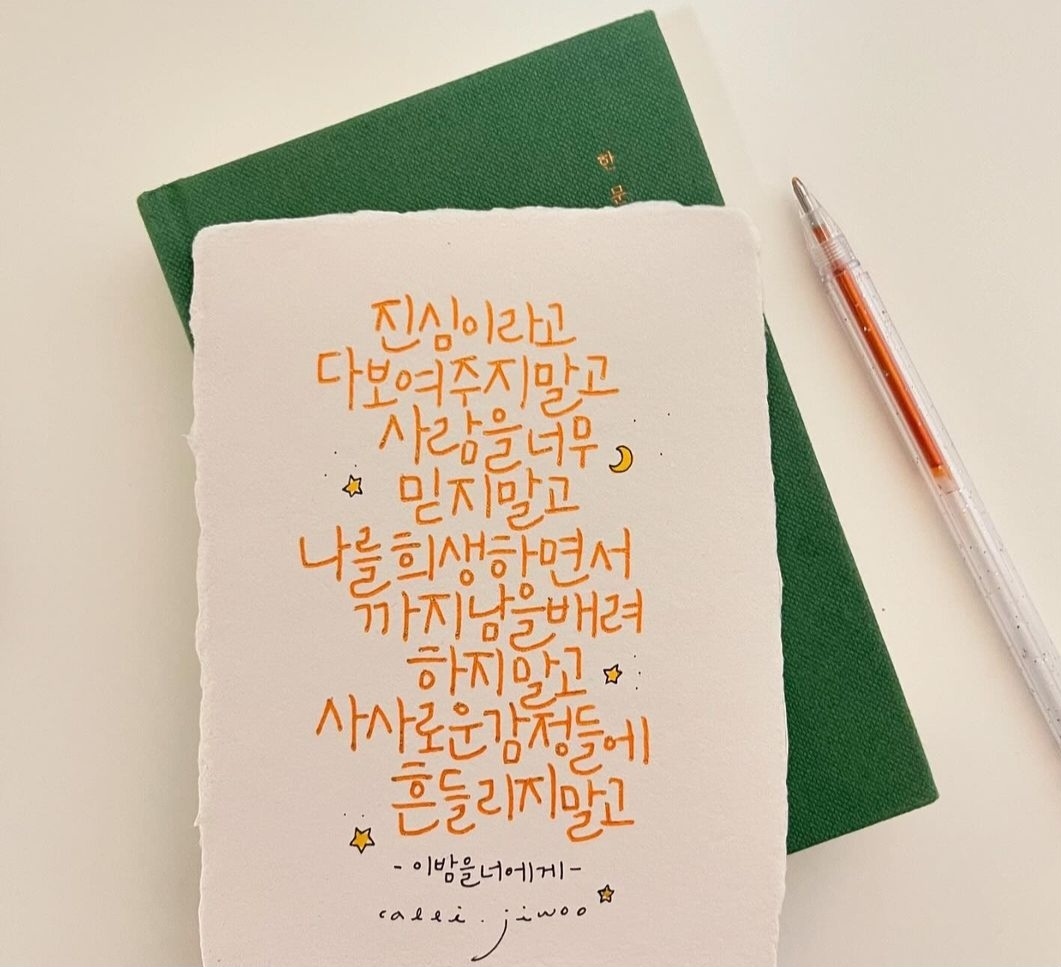 한 문
진심이라고
다보여주지말고
사람을너무
믿지말고
나를희생하면서
까지남을배려
하지말고
사사로운감정들에
흔들리지말고
-이밤을너에게-
calli.jiwoo